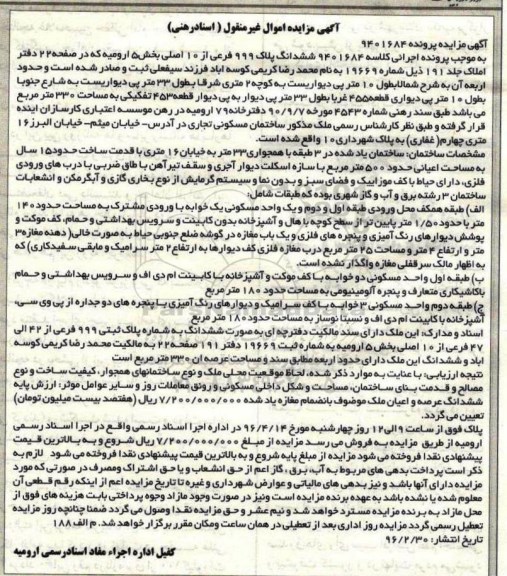 آگهی مزایده اموال غیر منقول ( اسناد رهنی)
آگهی مزایده پرونده ۹۴۰۱۶۸۴
به موجب پرونده اجرائی کلاسه ۹۴۰۱۶۸۴ ششدانگ پلاک ۹۹۹ فرعی از ۱۰ اصلی بخش۵ ارومیه که در صفحه۲۲ دفتر
املاک جلد ۱۹۱ ذیل شماره ۱۹۶۶۹ به نام محمد رضا کریمی کوسه اباد فرزند سیفعلی ثبت و صادر شده است و حدود
اربعه آن به شرح شمالا بطول ۱۰ متر پی دیواریست به کوچه۲ متری شرقا بطول ۳۳ متر پی دیواریست به شارع جنوبا
بطول ۱۰ متر پی دیواری قطعه۴۵۵ غربا بطول ۳۳ متر پی دیوار به پی دیوار قطعه۴۵۳ تفکیکی به مساحت ۳۳۰ متر مربع
می باشد طبق سند رهنی شماره ۴۵۴۳ مورخه ۹۰/۹/۷ دفترخانه ۷۹ ارومیه در رهن موسسه اعتباری کارسازان اینده
قرار گرفته و طبق نظر کارشناس رسمی ملک مذکور ساختمان مسکونی تجاری در آدرس- خیابان میثم- خیابان البرز ۱۶
متری چهارم( غفاری) به پلاک شهرداری ۱۰ واقع شده است.
مشخصات ساختمان: ساختمان یاد شده در ۳ طبقه با همجواری ۳۳ متر به خیابان۱۶ متری با قدمت ساخت حدود۱۵ سال
به مساحت اعیانی حدود ۵۰۰ متر مربع با سازه اسکلت دیوار آجری و سقف تیرآهن با طاق ضربی با درب های ورودی
فلزی، دارای حیاط با کف موزاییک و فضای سبز و بدون نما و سیستم گرمایش از نوع بخاری گازی و آبگرمکن و انشعابات
ساختمان ۳ رشته برق و آب و گاز شهری بوده که طبقات شامل:
الف) طبقه همکف محل ورودی طبقه اول و دوم و یک واحد مسکونی یک خوابه با ورودی مشترک به مساحت حدود ۱۴۰
متر با حدود ۱/۵۰ متر پایین تر از سطح کوچه با هال و آشپزخانه بدون کابینت و سرویس بهداشتی و حمام، کف موکت و
پوشش دیوار های رنگ آمیزی و پنجره های فلزی و یک باب مغازه در گوشه ضلع جنوبی حیاط به صورت خالی( دهنه مغازه۳
متر و ارتفاع ۴ متر و مساحت ۲۵ متر مربع درب مغازه فلزی کف دیوارها به ارتفاع۲ متر سرامیک و مابقی سفیدکاری) که
به اظهار مالک سرقفلی مغازه واگذار نشده است.
ب) طبقه اول واحد مسکونی دو خوابه با کف موکت و آشپزخانه با کابینت ام دی اف و سرویس بهداشتی و حمام
با کاشیکاری متعارف و پنجره آلومینیومی به مساحت حدود ۱۸۰ متر مربع
ج) طبقه دوم واحد مسکونی ۳ خوابه با کف سرامیک و دیوارهای رنگ آمیزی با پنجره های دو جداره از پی وی سی،
آشپزخانه با کابینت ام دی اف و نسبتا نوساز به مساحت حدود ۱۸۰ متر مربع
اسناد و مدارک: این ملک دارای سند مالکیت دفترچه ای به صورت ششدانگ به شماره پلاک ثبتی ۹۹۹ فرعی از ۴۲ الی
۴۷ فرعی از ۱۰ اصلی بخش ۵ ارومیه به شماره ثبت ۱۹۶۶۹ دفتر ۱۹۱ صفحه۲۲ به مالکیت محمد رضا کریمی کوسه
اباد و ششدانگ این ملک دارای حدود اربعه مطابق سند و مساحت عرصه ان ۳۳۰ متر مربع است
نتیجه ارزیابی: با عنایت به موارد ذکر شده، لحاظ موقعیت محلی ملک و نوع ساختمانهای همجوار، کیفیت ساخت و نوع
مصالح و قدمت بنای ساختمان، مساحت و شکل داخلی مسکونی و رونق معاملات روز و سایر عوامل موثر، ارزش پایه
ششدانگ عرصه و اعیان ملک موصوف بانضمام مغازه یاد شده ۷/۲۰۰/۰۰۰/۰۰۰ ریال (هفتصد بیست میلیون تومان)
تعیین می گردد.
پلاک فوق از ساعت ۹ الی۱۲ روز چهارشنبه مورخ ۹۶/۴/۱۴ در اداره اجرا اسناد رسمی واقع در اجرا اسناد رسمی
ارومیه از طریق مزایده به فروش می رسد مزایده از مبلغ ۷/۲۰۰/۰۰۰/۰۰۰ ریال شروع و به بالاترین قیمت
پیشنهادی نقدا فروخته می شود مزایده از مبلغ پایه شروع و به بالاترین قیمت پیشنهادی نقدا فروخته می شود لازم به
ذکر است پرداخت بدهی های مربوط به آب، برق ، گاز اعم از حق انشعاب و یا حق اشتراک و مصرف در صورتی که مورد
مزایده دارای آنها باشد و نیز بدهی های مالیاتی و عوارض شهرداری و غیره تا تاریخ مزایده اعم از اینکه رقم قطعی آن
معلوم شده یا نشده باشد به عهده برنده مزایده است و نیز در صورت وجود مازاد وجوه پرداختی بابت هزینه های فوق از
محل مازاد به برنده مزایده مسترد خواهد شد و نیم عشر و حق مزایده نقدا وصول می گردد ضمنا چنانچه روز مزایده
تعطیل رسمی گردد مزایده روز اداری بعد از تعطیلی در همان ساعت و مکان مقرر برگزار خواهد شد. م الف ۱۸۸
تاریخ انتشار: ۹۶/۲/۳۰
کفیل اداره اجراء مفاد اسناد رسمی ارومیه